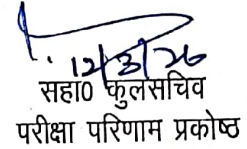 12/3/26
सहा0 कुलसचिव
परीक्षा परिणाम प्रकोष्ठ